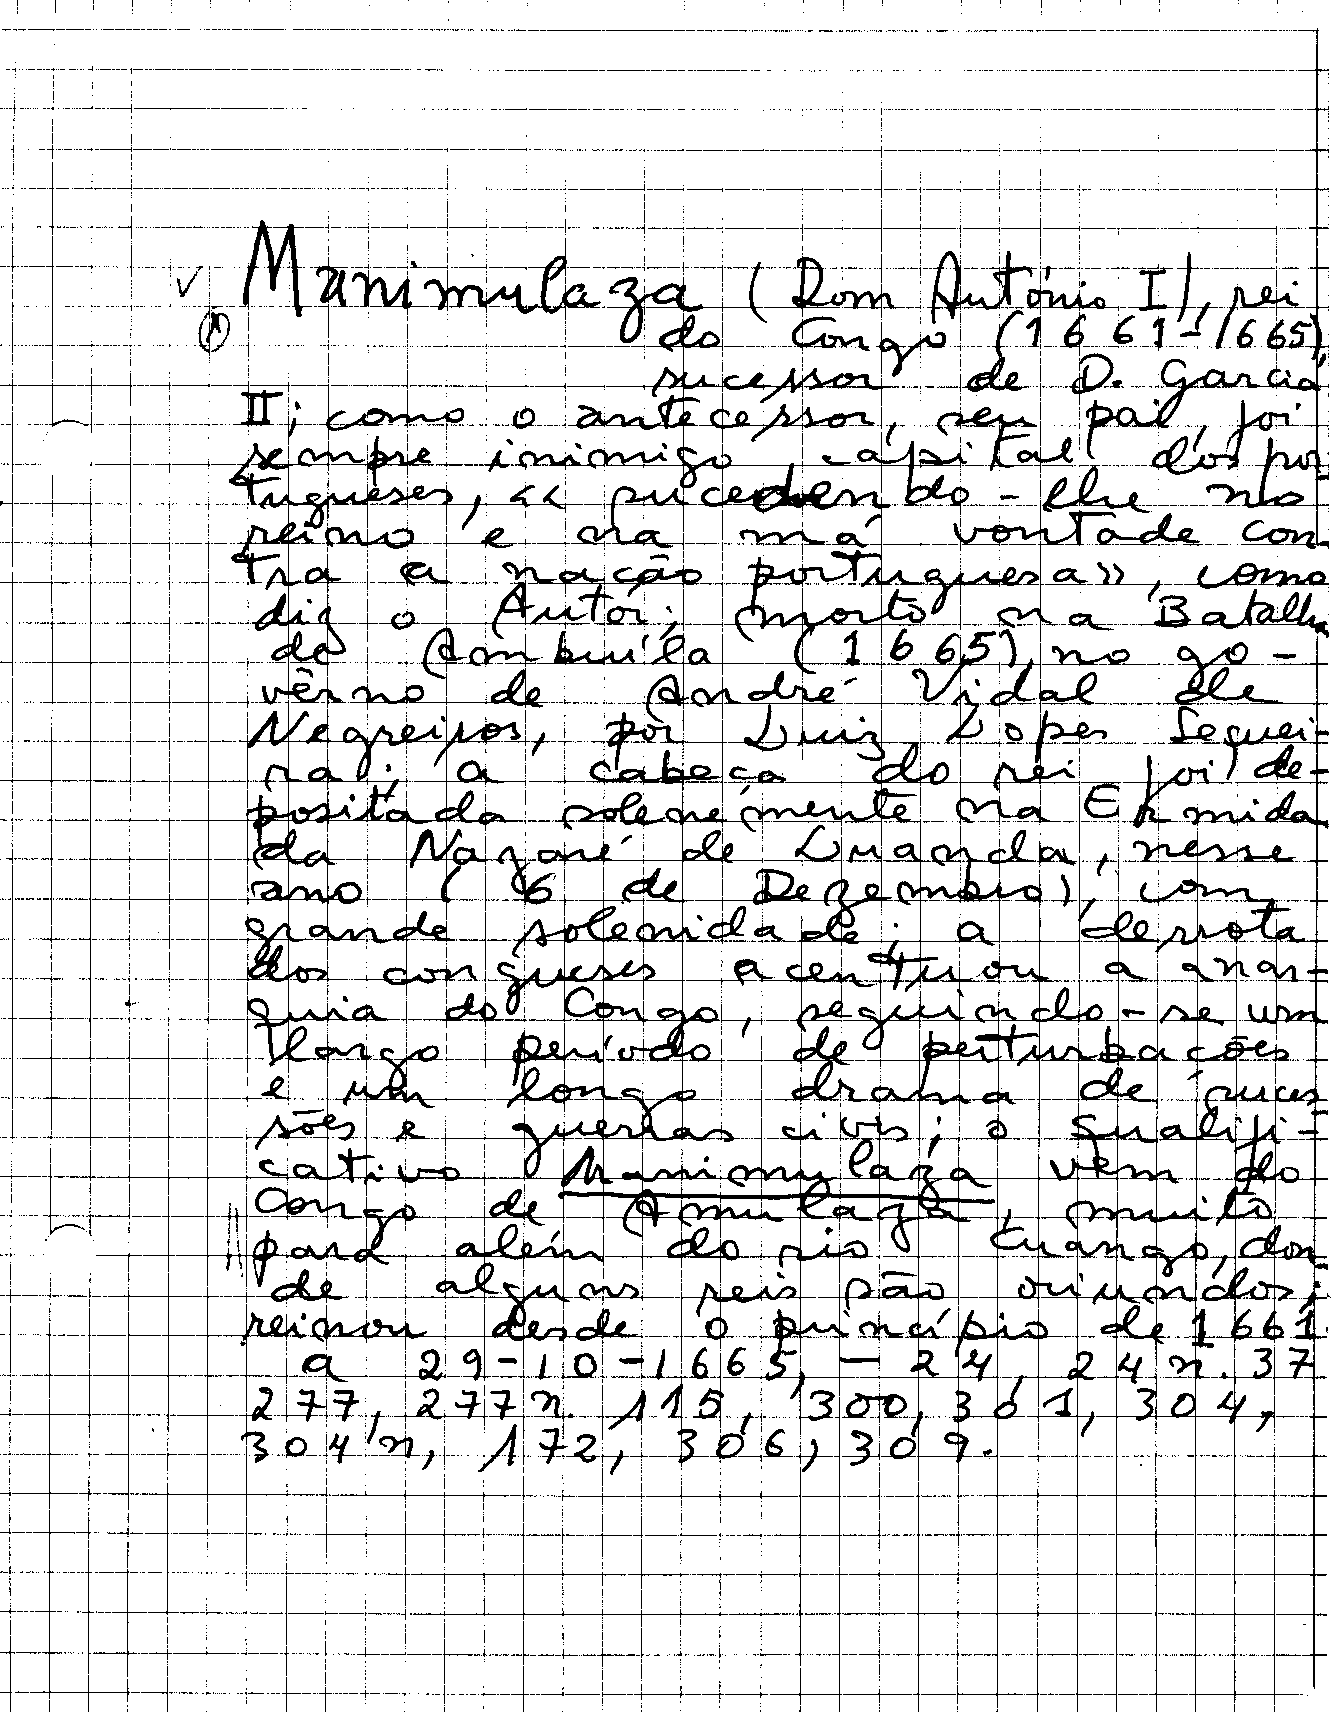 Manimulaza (Dom António I), rei
do Congo (1661-1665),
sucessor de D. Garcia
II; como o antecessor, seu pai, foi
sempre inimigo capital dos por
tugueses, «sucedendo-lhe no
reino e na má vontade con
tra a nação portuguesa», como
diz o Autor; morto na Batalha
de Ambuíla (1665), no go-
vêrno de André Vidal de
Negreiros, por Luiz Lopes Sequei-
ra; a cabeça do rei foi de-
positada solenemente na Ermida
da Nazaré de Luanda, nesse
ano (6 de Dezembro), com
grande solenidade; a derrota
dos congueses acentuou a anar-
quia do Congo, seguindo-se um
largo período de perturbações
e um longo drama de suces
sões e guerras civis; o qualifi-
cativo Manimulaza vem do
Congo de Amulaza, muito
para além do rio Cuango, don
de alguns reis são oriundos;
reinou desde o princípio de 1661
a 29-10-1665, - 24, 24 n. 37
277, 277 n. 115, 300, 301, 304,
304 n, 172, 306, 309.